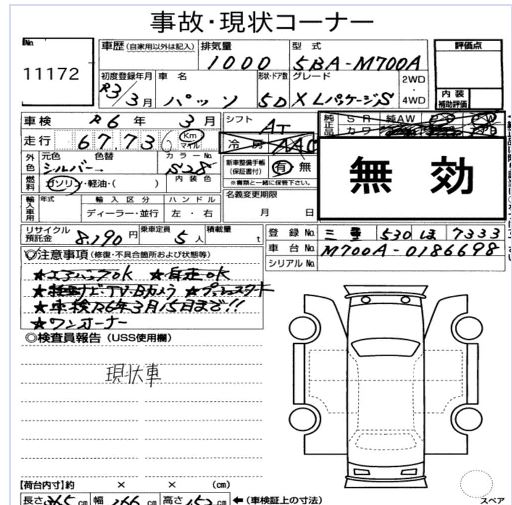 事故・現状コーナー
No. 11172
車歴 (自家用以外は記入) 排気量 1000 型式 5BA-M700A 評価点
初度登録年月 R3年3月 車名 パッソ 形状・ドア数 5D グレード XLパケージS 2WD・4WD 内装補助評価
車検 R6年3月 シフト AT
走行 67,736 Km マイル 冷房 AAC 純正品 SR 純AW カワ
無効
外色 元色 シルバー→ 色替 カラーNo. S28 内装色 新車整備手帳(保証書) 有・無 ※書類と一緒に保管下さい。
燃料 ガソリン・軽油・( )
輸入車用 年式 輸入区分 ディーラー・並行 ハンドル 左・右 名義変更期限 月 日
リサイクル預託金 8,190円 乗車定員 5人 積載量 t
登録No. 三重 530 ほ 7333
車台No. M700A-0186698
シリアルNo.
注意事項 (修復・不具合箇所および状態等)
★エアバックOK ★自走OK
ナビ・TV・Bカメラ ★プッシュスタート
★車検R6年3月15日まで!!
★ワンオーナー
◎検査員報告 (USS使用欄)
現状車
【荷台内寸】約 × × (cm)
長さ 365 幅 166 高さ 152 ←(車検証上の寸法)
スペア